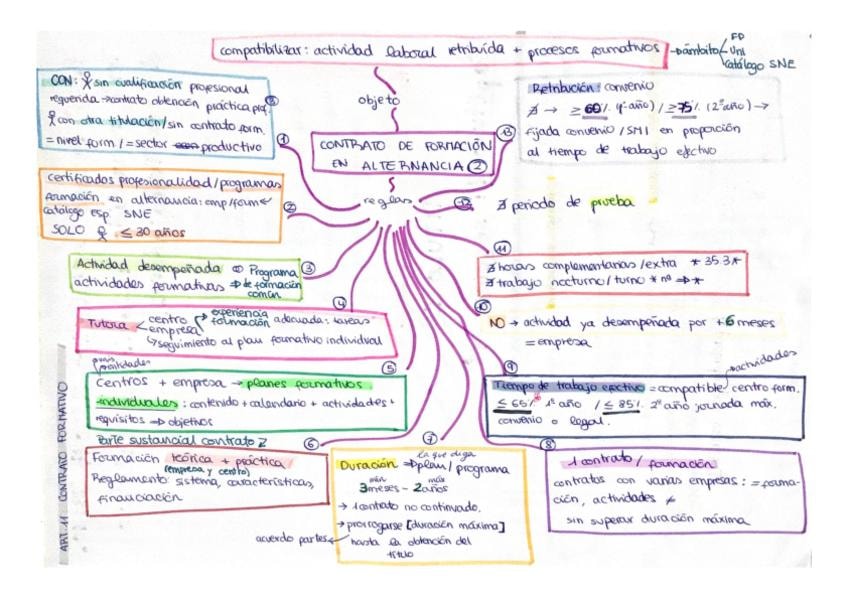 compatibilizar: actividad laboral retribuida + procesos formativos → ámbito
FP
Uni
catálogo SNE
objeto
CONTRATO DE FORMACIÓN
EN ALTERNANCIA ②
reglas
①
CON: sin cualificación profesional
requerida → contrato obtención práctica prof. ③
con otra titulación/sin contrato form.
= nivel form / = sector productivo
②
certificados profesionalidad/programas
formación en alternancia: emp/form
catálogo esp. SNE
SOLO ≤ 30 años
③
Actividad desempeñada Programa
actividades formativas → de formación
común
④
Tutora
centro
empresa
experiencia
formación adecuada: tareas
seguimiento al plan formativo individual
⑤
Centros + empresa → planes formativos
individuales: contenido + calendario + actividades +
requisitos → objetivos
⑥
Parte sustancial contrato
Formación teórica + práctica
(empresa y centro)
Reglamento: sistema, características,
financiación
⑦
la que diga
Duración ⇒ plan / programa
min máx
3 meses - 2 años
→ 1 contrato no continuado.
→ prorrogarse [duración máxima]
hasta la obtención del
título
acuerdo partes
⑧
1 contrato / formación
contratos con varias empresas: = forma-
ción, actividades ≠
sin superar duración máxima
⑨
actividades
Tiempo de trabajo efectivo = compatible centro form.
≤ 65% 1º año / ≤ 85% 2º año jornada máx.
convenio o legal.
⑩
NO → actividad ya desempeñada por +6 meses
= empresa
⑪
∄ horas complementarias/extra * 35.3 *
∄ trabajo nocturno / turno * nº ⇒ *
⑫
∄ periodo de prueba
⑬
Retribución: convenio
∄ → ≥ 60% (1º año) / ≥ 75% (2º año) →
fijada convenio / SMI en proporción
al tiempo de trabajo efectivo
ART. 11 CONTRATO FORMATIVO